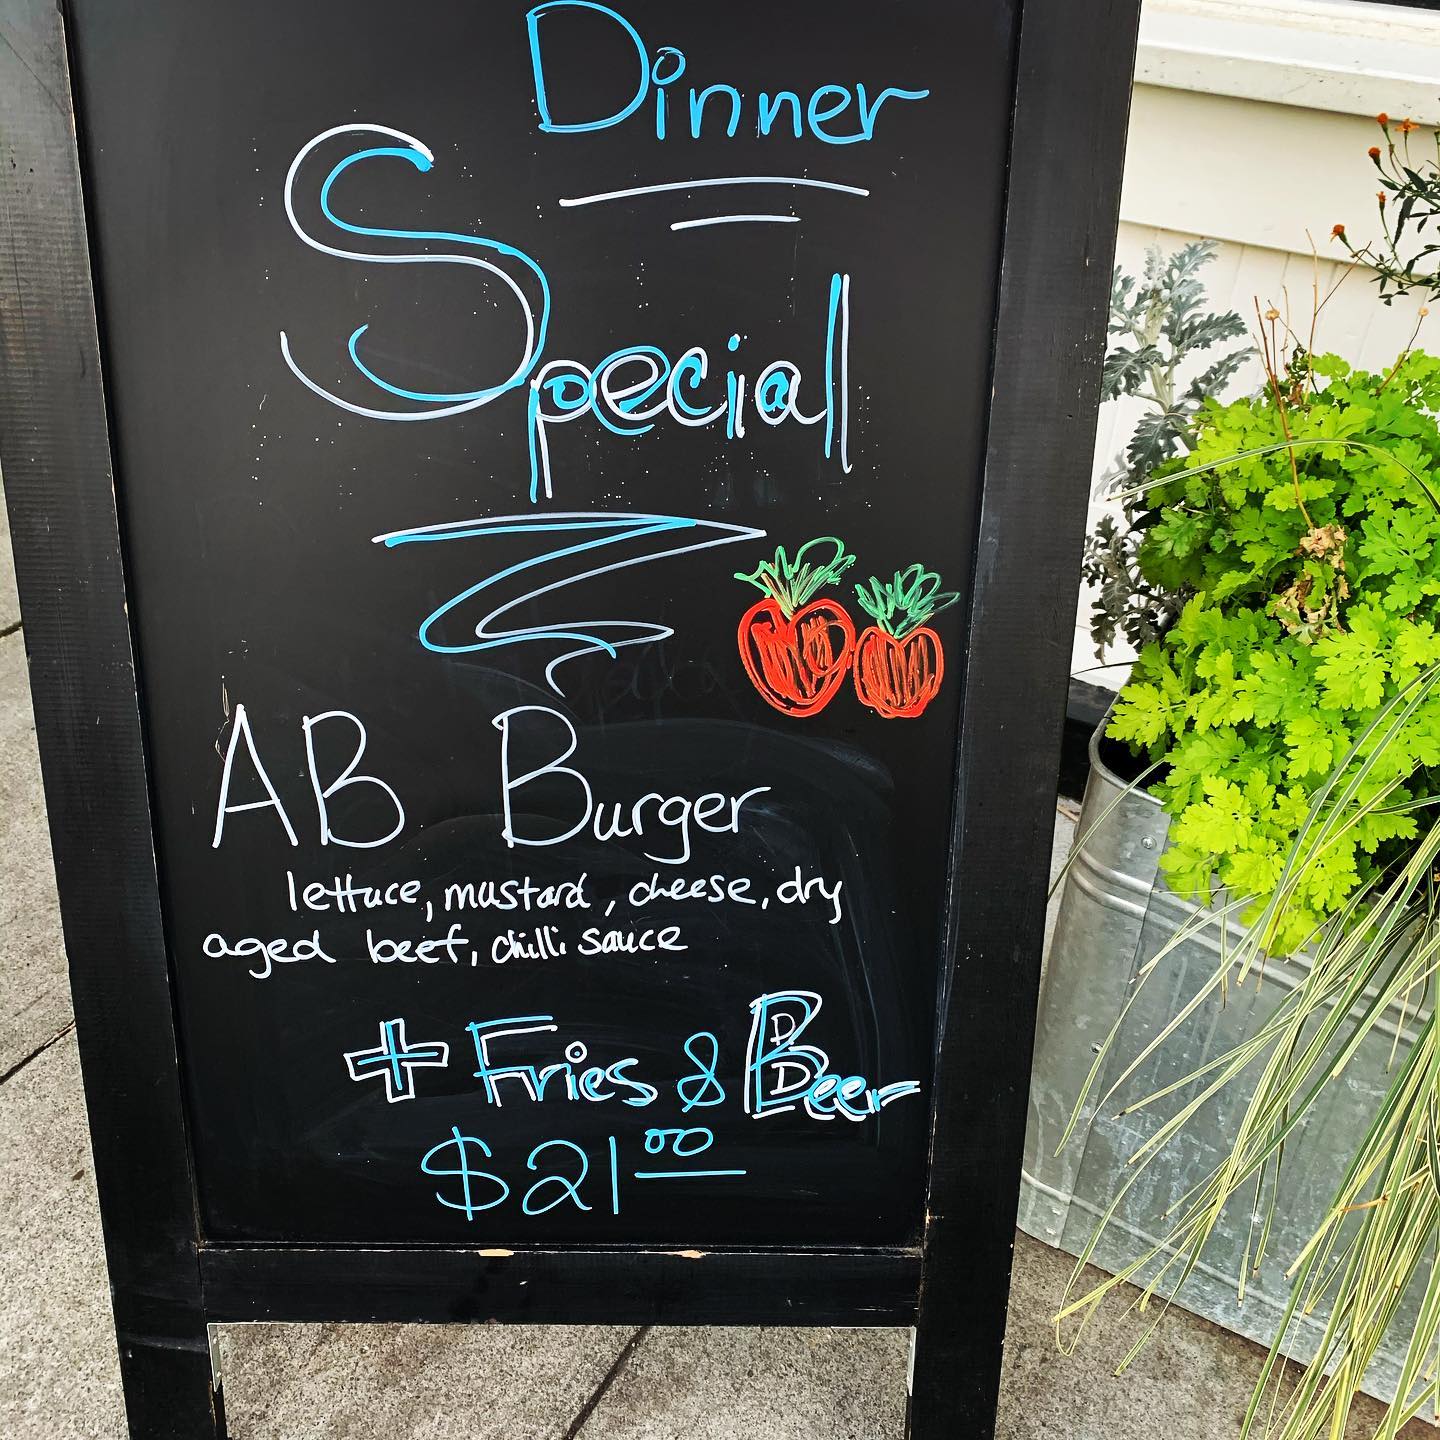 Dinner
Special
AB Burger
lettuce, mustard, cheese, dry
aged beef, chilli sauce
+ Fries & Beer
$21.00